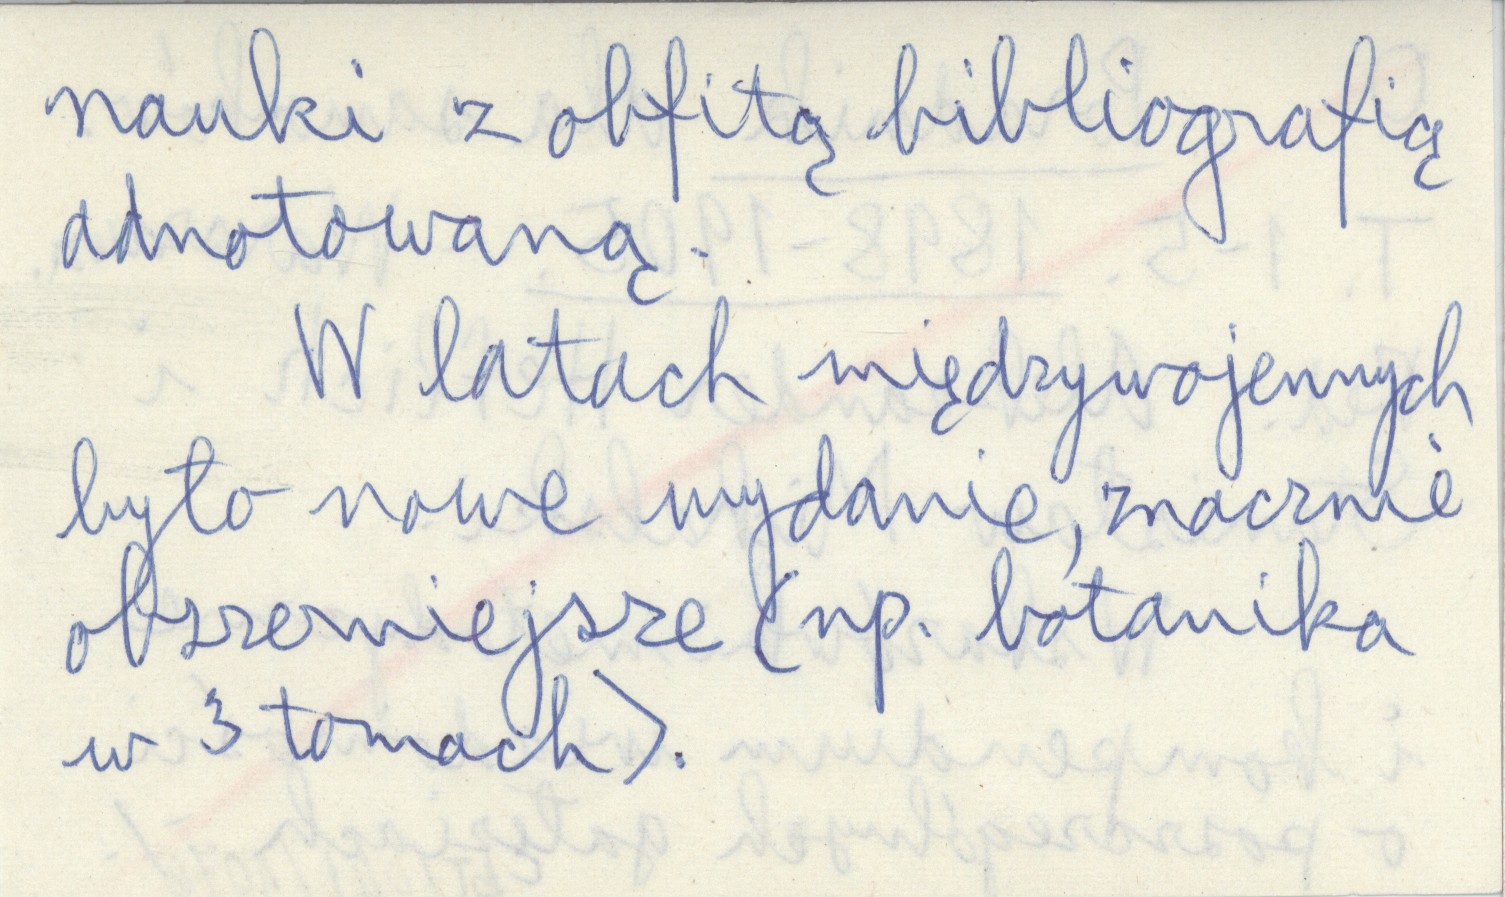 nauki z obfitą bibliografią
adnotowaną.
W latach międzywojennych
było nowe wydanie, znacznie
obszerniejsze (np. botanika
w 3 tomach).